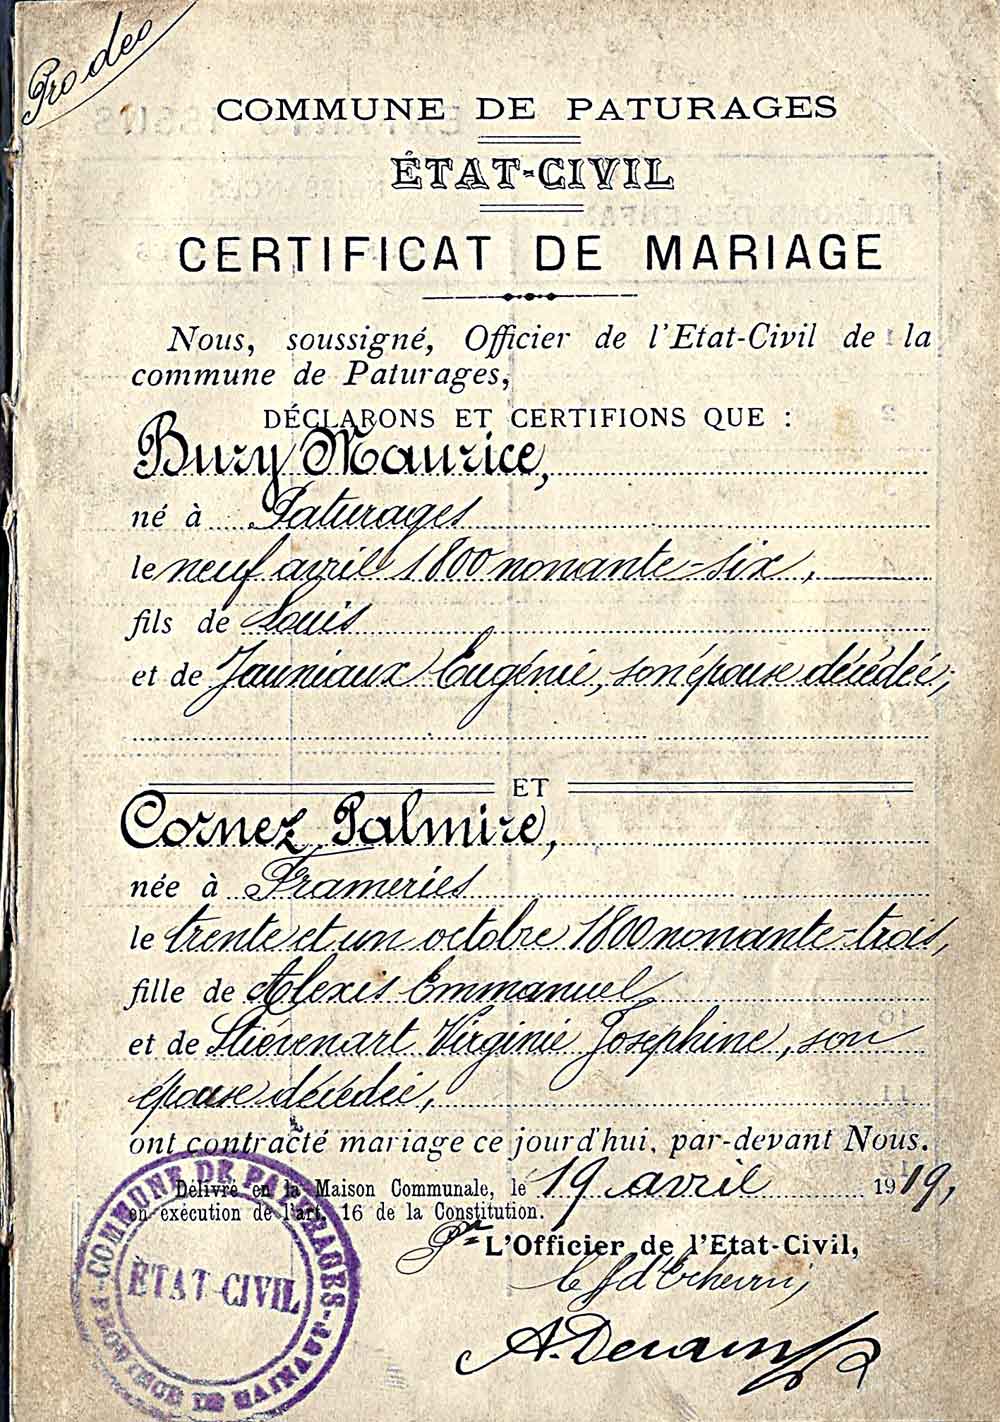 Pro deo
COMMUNE DE PATURAGES
ÉTAT-CIVIL
CERTIFICAT DE MARIAGE
Nous, soussigné, Officier de l'Etat-Civil de la
commune de Paturages,
DÉCLARONS ET CERTIFIONS QUE :
Bury Maurice,
né à Paturages
le neuf avril 1800 nonante-six,
fils de Louis
et de Jauniaux Eugénie, son épouse décédée;
ET
Cornez Palmire,
née à Frameries
le trente et un octobre 1800 nonante-trois,
fille de Alexis Emmanuel,
et de Stiévenart Virginie Josephine, son
épouse décédée,
ont contracté mariage ce jourd'hui, par-devant Nous.
Délivré en la Maison Communale, le 19 avril 1919,
en exécution de l'art. 16 de la Constitution.
Pr L'Officier de l'Etat-Civil,
COMMUNE DE PATURAGES - PROVINCE DE HAINAUT
ÉTAT-CIVIL